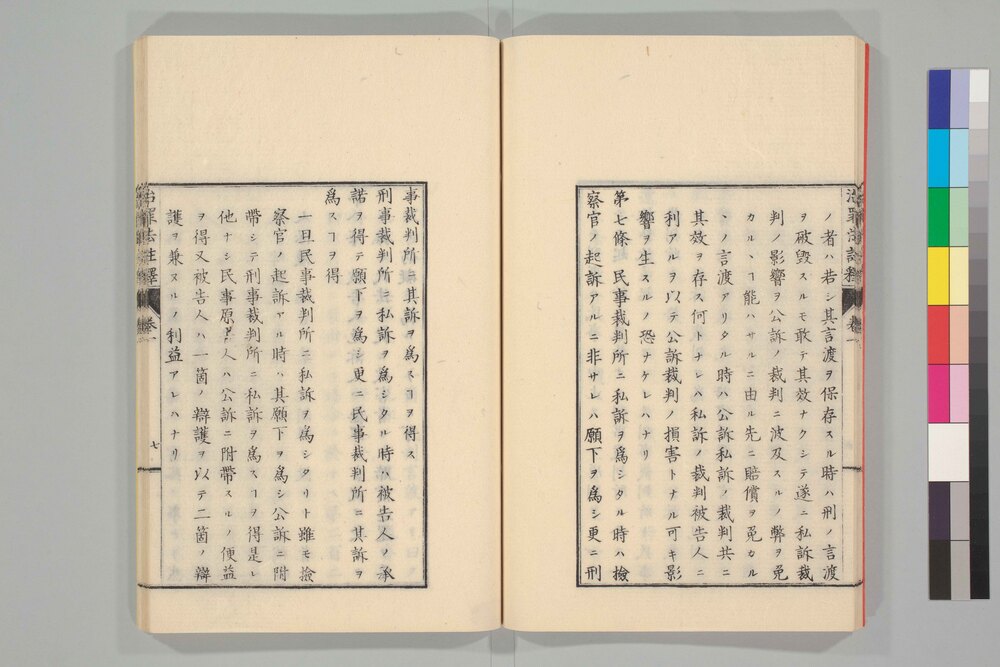 治罪法註釋 卷一
ノ者ハ若シ其言渡ヲ保存スル時ハ刑ノ言渡
ヲ破毀スルモ敢テ其效ナクシテ遂ニ私訴裁
判ノ影響ヲ公訴ノ裁判ニ波及スルノ弊ヲ免
カルヽヿ能ハサルニ由ル先ニ賠償ヲ免カル
ヽノ言渡アリタル時ハ公訴私訴ノ裁判共ニ
其效ヲ存ス何トナレハ私訴ノ裁判被告人ニ
利アルヲ以テ公訴裁判ノ損害トナル可キ影
響ヲ生スルノ恐ナケレハナリ
第七條 民事裁判所ニ私訴ヲ爲シタル時ハ撿
察官ノ起訴アルニ非サレハ願下ヲ爲シ更ニ刑
事裁判所ニ其訴ヲ爲スヿヲ得ス
刑事裁判所ニ私訴ヲ爲シタル時ハ被告人ノ承
諾ヲ得テ願下ヲ爲シ更ニ民事裁判所ニ其訴ヲ
爲スヿヲ得
一旦民事裁判所ニ私訴ヲ爲シタリト雖モ撿
察官ノ起訴アル時ハ其願下ヲ爲シ公訴ニ附
帶シテ刑事裁判所ニ私訴ヲ爲スヿヲ得是レ
他ナシ民事原吿人ハ公訴ニ附帶スルノ便益
ヲ得又被告人ハ一箇ノ辯護ヲ以テ二箇ノ辯
護ヲ兼ヌルノ利益アレハナリ
治罪法註釋 卷一 七